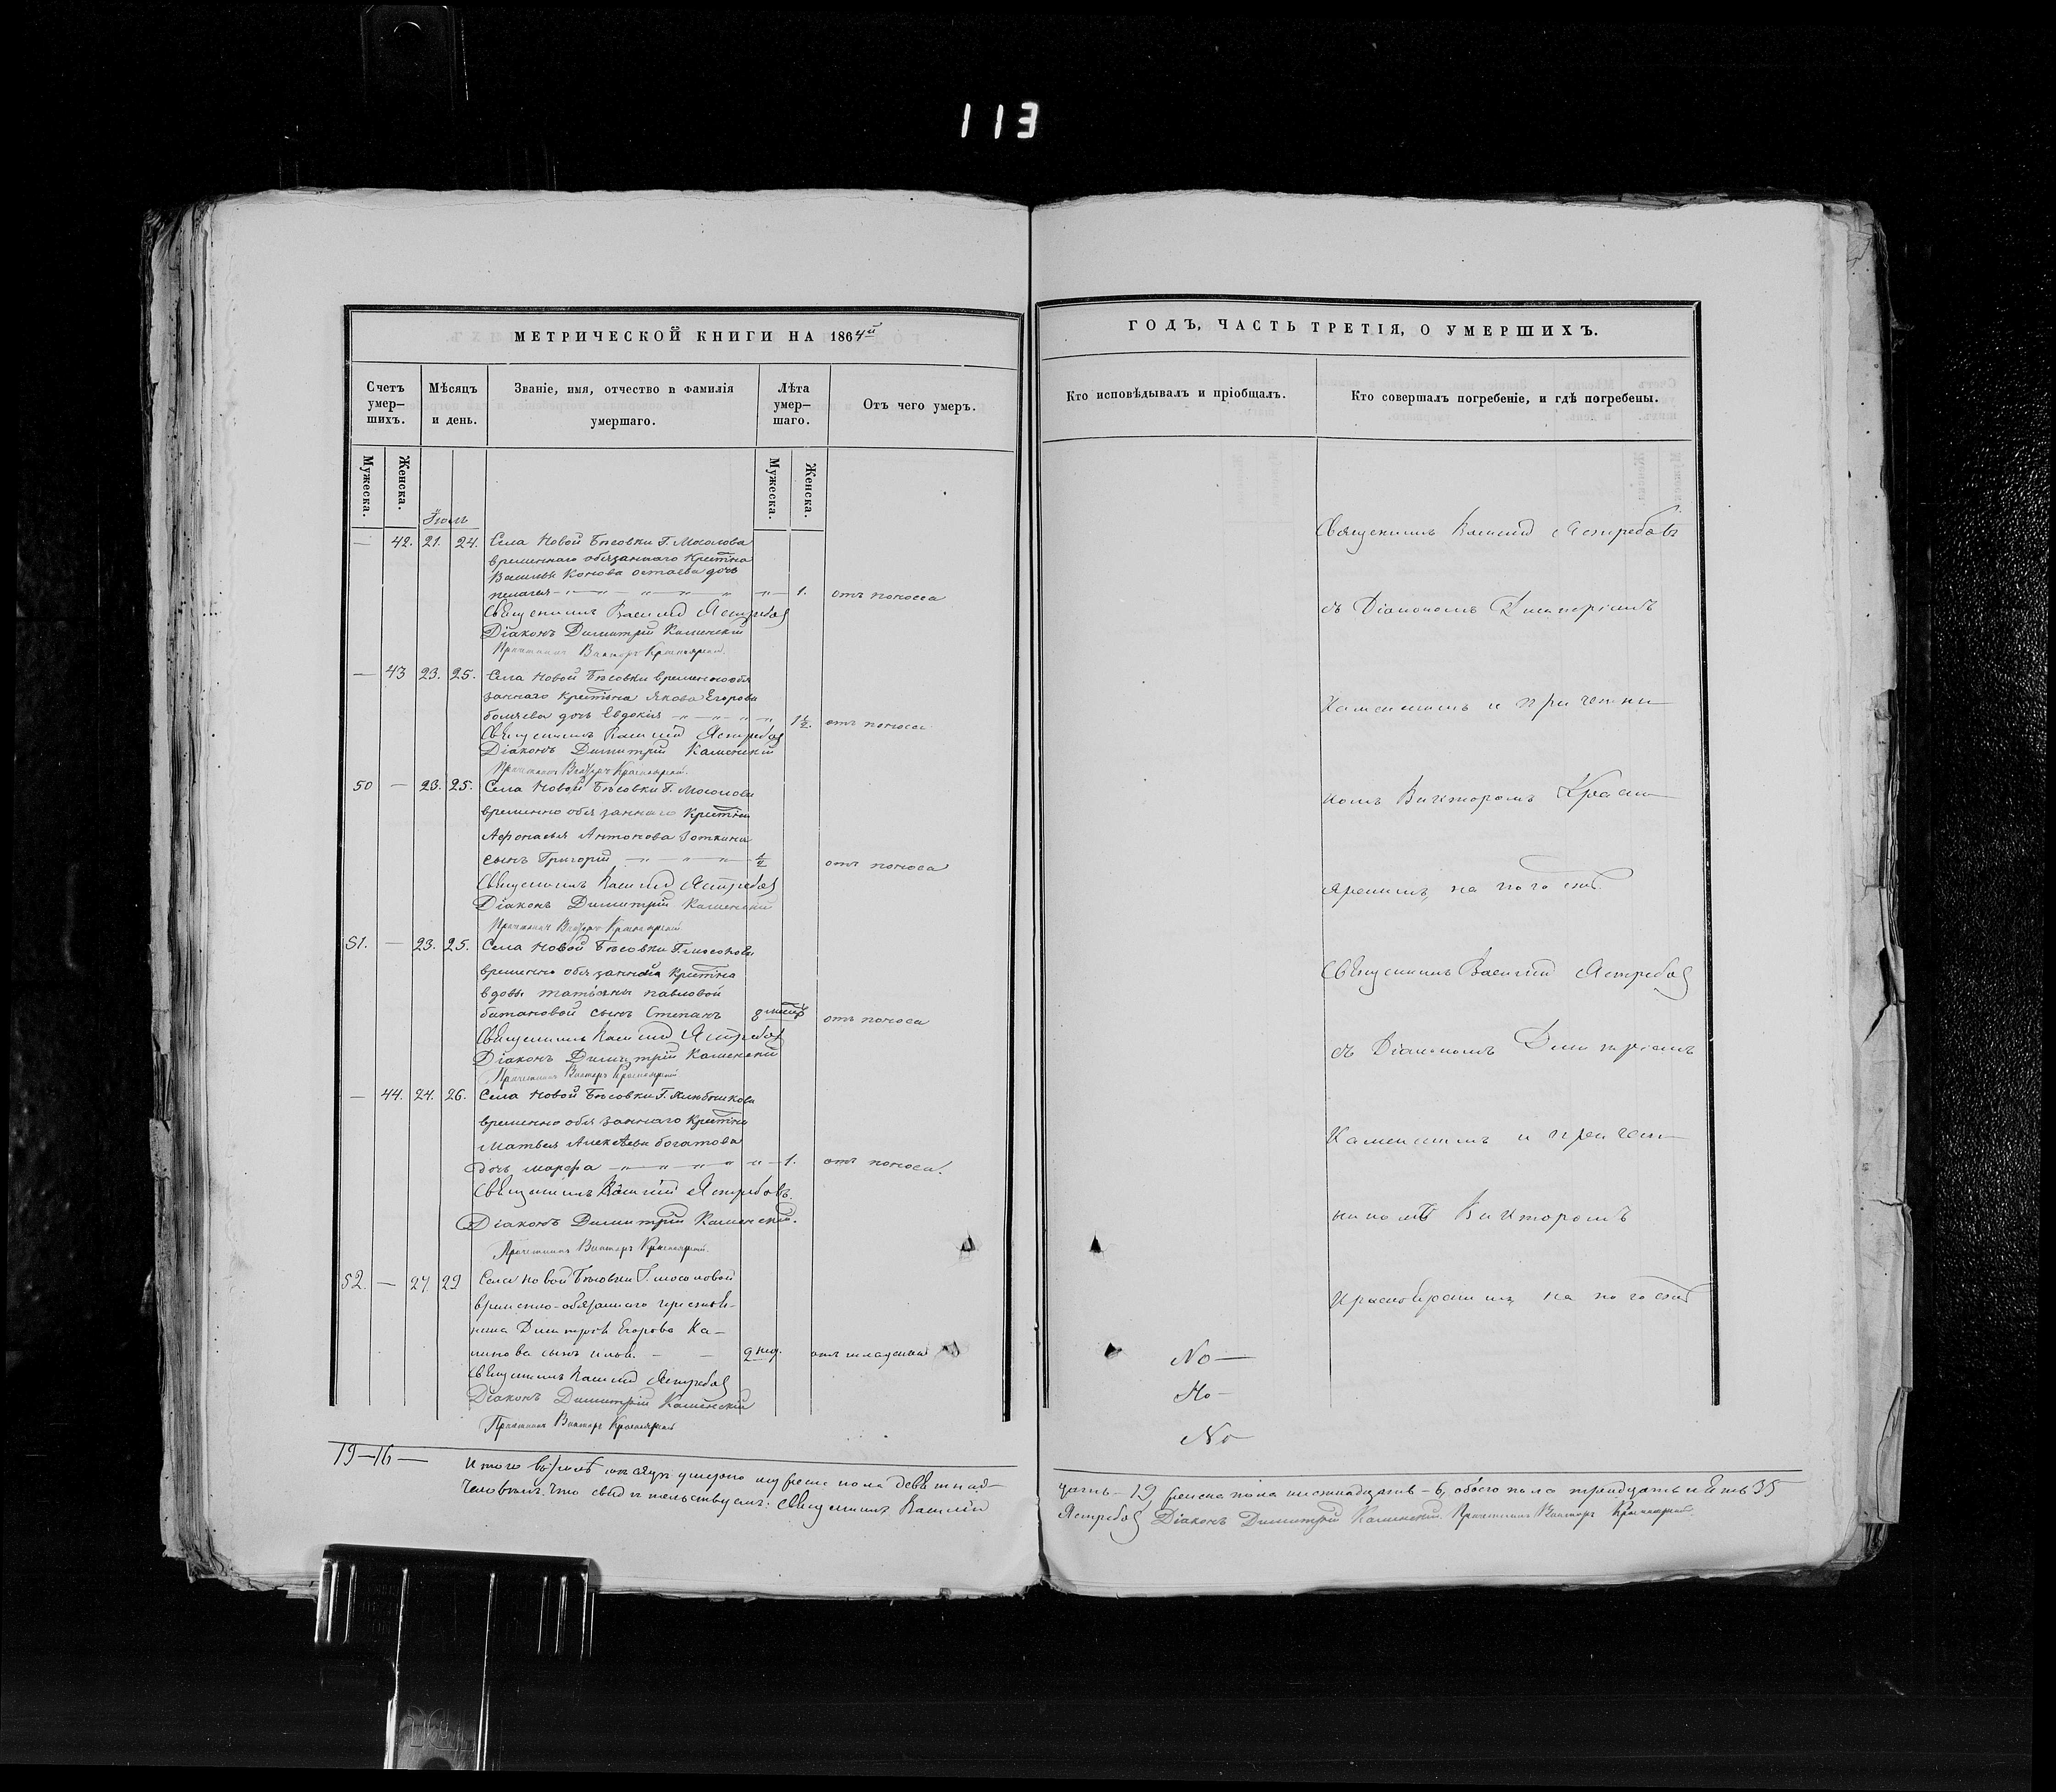 113
МЕТРИЧЕСКОЙ КНИГИ НА 1864й
Счетъ умер–шихъ.
Мѣсяцъ и день.
Званіе, имя, отчество и фамилія умершаго.
Лѣта умер–шаго.
Отъ чего умеръ.
Мужеска.
Женска.
Мужеска.
Женска.
Іюль
— 42. 21. 24. Села Новой Бѣсовки Г. Мосолова
временнаго обязаннаго Крестна
дочь
пелагея — " — " — 1. отъ поноса
Священникъ Василій Ястребов
Діаконъ Димитрій Каменскій
Причетникъ Викторъ Красноярскій.
— 43 23. 25. Села Новой Бѣсовки временнообя
заннаго крестьна Якова Егорова
дочь Евдокія — " — " — 1½. отъ поноса
Священникъ Василій Ястребов
Діаконъ Димитрій Каменскій
Причетникъ Викторъ Красноярскій.
50 — 23. 25. Села Новой Бѣсовки Г. Мосолова
временно обязаннаго Крестна
Афонасья Антонова
сынъ Григорій — " — " — ½ отъ поноса
Священникъ Василій Ястребов
Діаконъ Димитрій Каменскій
Причетникъ Викторъ Красноярскій
51. — 23. 25. Села Новой Бѣсовки Г. мосолова
временно обязанной Крестна
вдовы татьяны павловой
батановой сынъ Степанъ отъ поноса
Священникъ Василій Ястребов
Діаконъ Димитрій Каменскій
Причетникъ Викторъ Красноярскій
— 44. 24. 26. Села Новой Бѣсовки Г.
временно обязаннаго Крестна
Матвея Алексѣева богатова
дочь марфа — " — " — 1. отъ поноса.
Священникъ Василій Ястребовъ.
Діаконъ Димитрій Каменскій.
Причетникъ Викторъ Красноярскій.
52. — 27 29 Села Новой Бѣсовки Г. мосоловой
временно-обязаннаго крестья-
нина Димитрія Егорова Ка–
линова сынъ илья. — — 2 нед. отъ младенч
Священникъ Василій Ястребов
Діаконъ Димитрій Каменскій
Причетникъ Викторъ Красноярскій
19–16 — Итого въ Іюлѣ мѣсяцѣ умерло мужеска пола девѣтнад–
Человѣкъ. что свидѣтельствуемъ: Священникъ Василій
ГОДЪ, ЧАСТЬ ТРЕТІЯ, О УМЕРШИХЪ.
Кто исповѣдывалъ и пріобщалъ.
Кто совершалъ погребеніе, и гдѣ погребены.
Священникъ Василій Ястребовъ
съ Діакономъ Димитріемъ
Каменскимъ и причетни
комъ Викторомъ Красно
ярскимъ, на погостѣ.
Священникъ Василій Ястребов
съ Діакономъ Димитріемъ
Каменскимъ и причет–
никомъ Викторомъ
Красноярскимъ на погостѣ
No —
No —
No
цать – 19 женска пола шестнадцать – 6, обоего пола тридцать пѣть 35
Ястребов Діаконъ Димитрій Каменскій. Причетникъ Викторъ Красноярскій.